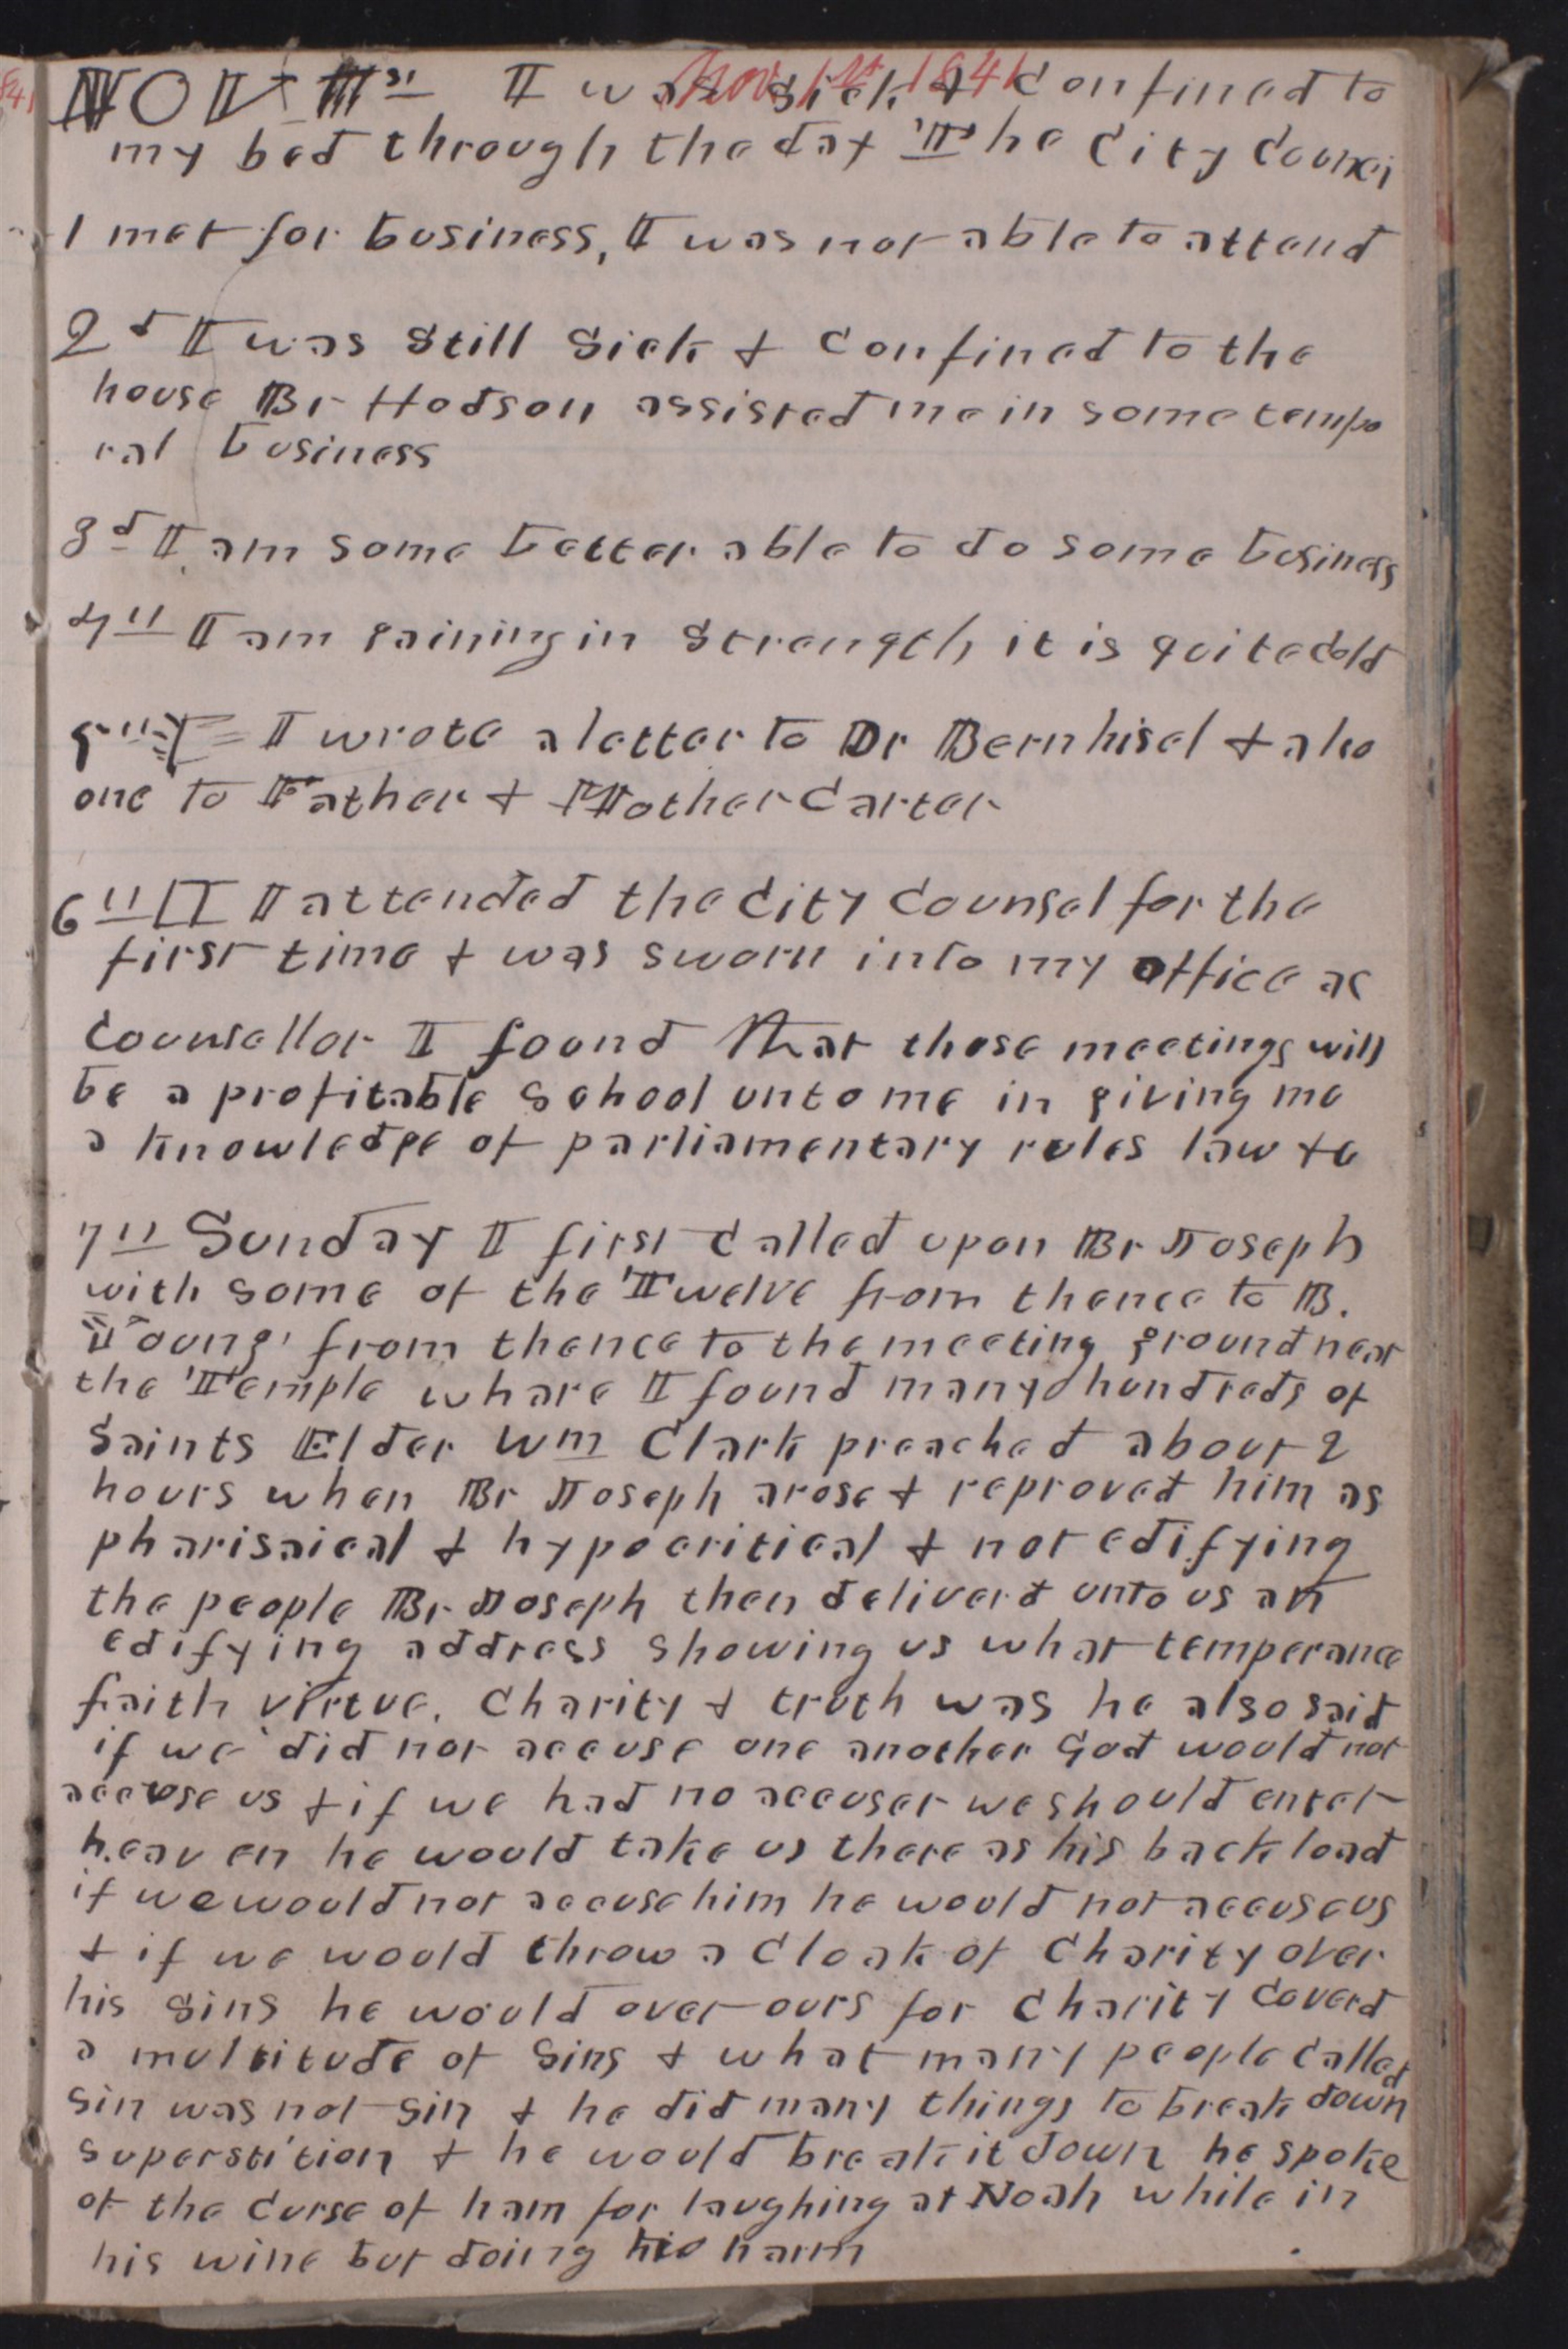 Nov 1st 1841
NOV 1st I was sick & Confined to
my bed through the day The City Counci
l met for business, I was not able to attend
2d I was Still Sick & Confined to the
house Br Hodson assisted me in some tempo
ral business
3d I am some better able to do some business
4th I am gaining in Strength it is quite cold
5th I wrote a letter to Dr Bernhisel & also
one to Father & Mother Carter
6th I attended the City Counsel for the
first time & was sworn into my office as
Counsellor I found that those meetings will
be a profitable School unto me in giving me
a knowledge of parliamentary rules law &c
7th Sunday I first Called upon Br Joseph
with some of the Twelve from thence to B.
Young from thence to the meeting ground near
the Temple whare I found many hundreds of
Saints Elder Wm Clark preached about 2
hours when Br Joseph arose & reproved him as
pharisaical & hypocritical & not edifying
the people Br Joseph then deliverd unto us an
edifying address Showing us what temperance
faith virtue. Charity & truth was he also said
if we did not accuse one another God would not
accuse us & if we had no accuser we should enter
heaven he would take us there as his back load
if we would not accuse him he would not accuse us
& if we would throw a Cloak of Charity over
his Sins he would over ours for Charity Coverd
a multitude of Sins & what many people Called
Sin was not Sin & he did many things to break down
Superstition & he would break it down he spoke
of the Curse of ham for laughing at Noah while in
his wine but doing no harm